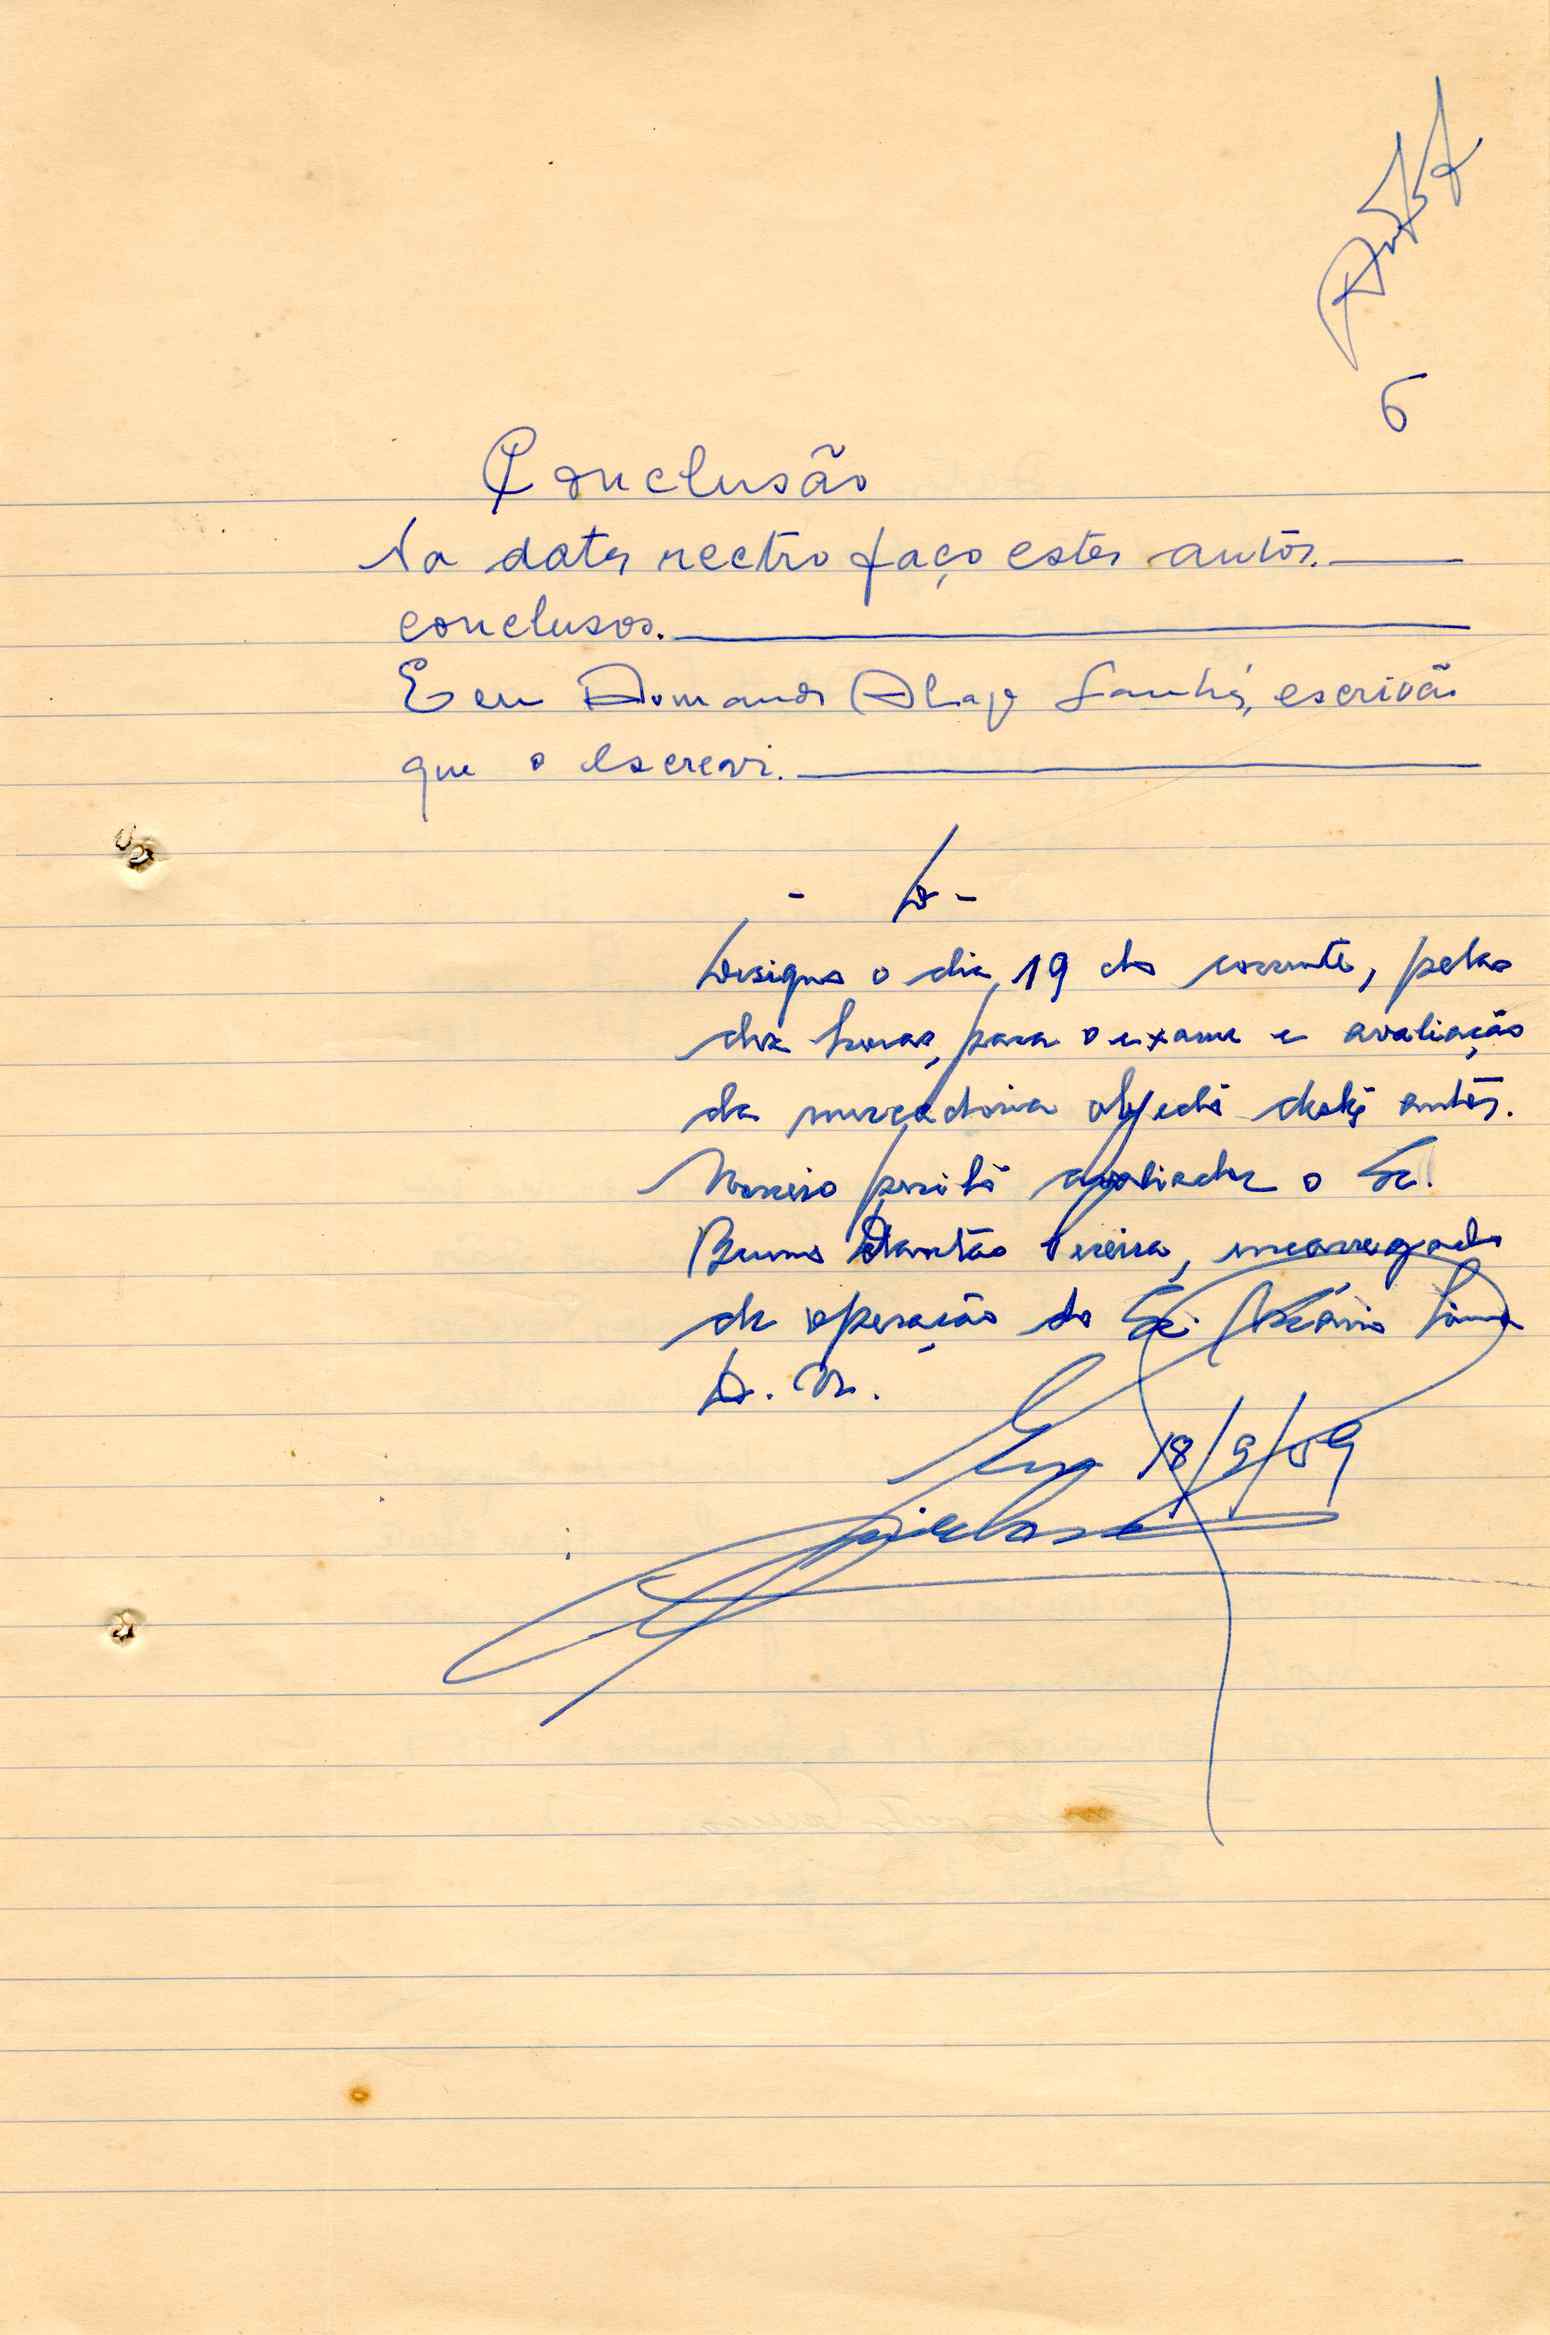 6
Conclusão
Na data rectro faço estes autos.
conclusos.
E eu Armando Sanhá, escrivão
que o escrevi.
- D -
Designo o dia 19 do corrente, pelas
dez horas, para o exame e avaliação
da mercadoria objecto destes autos.
Nomeio perito avaliador o Sr.
Bruno Teixeira, encarregado
de operação do Sr. Mário Lima
D. N.
18/9/59